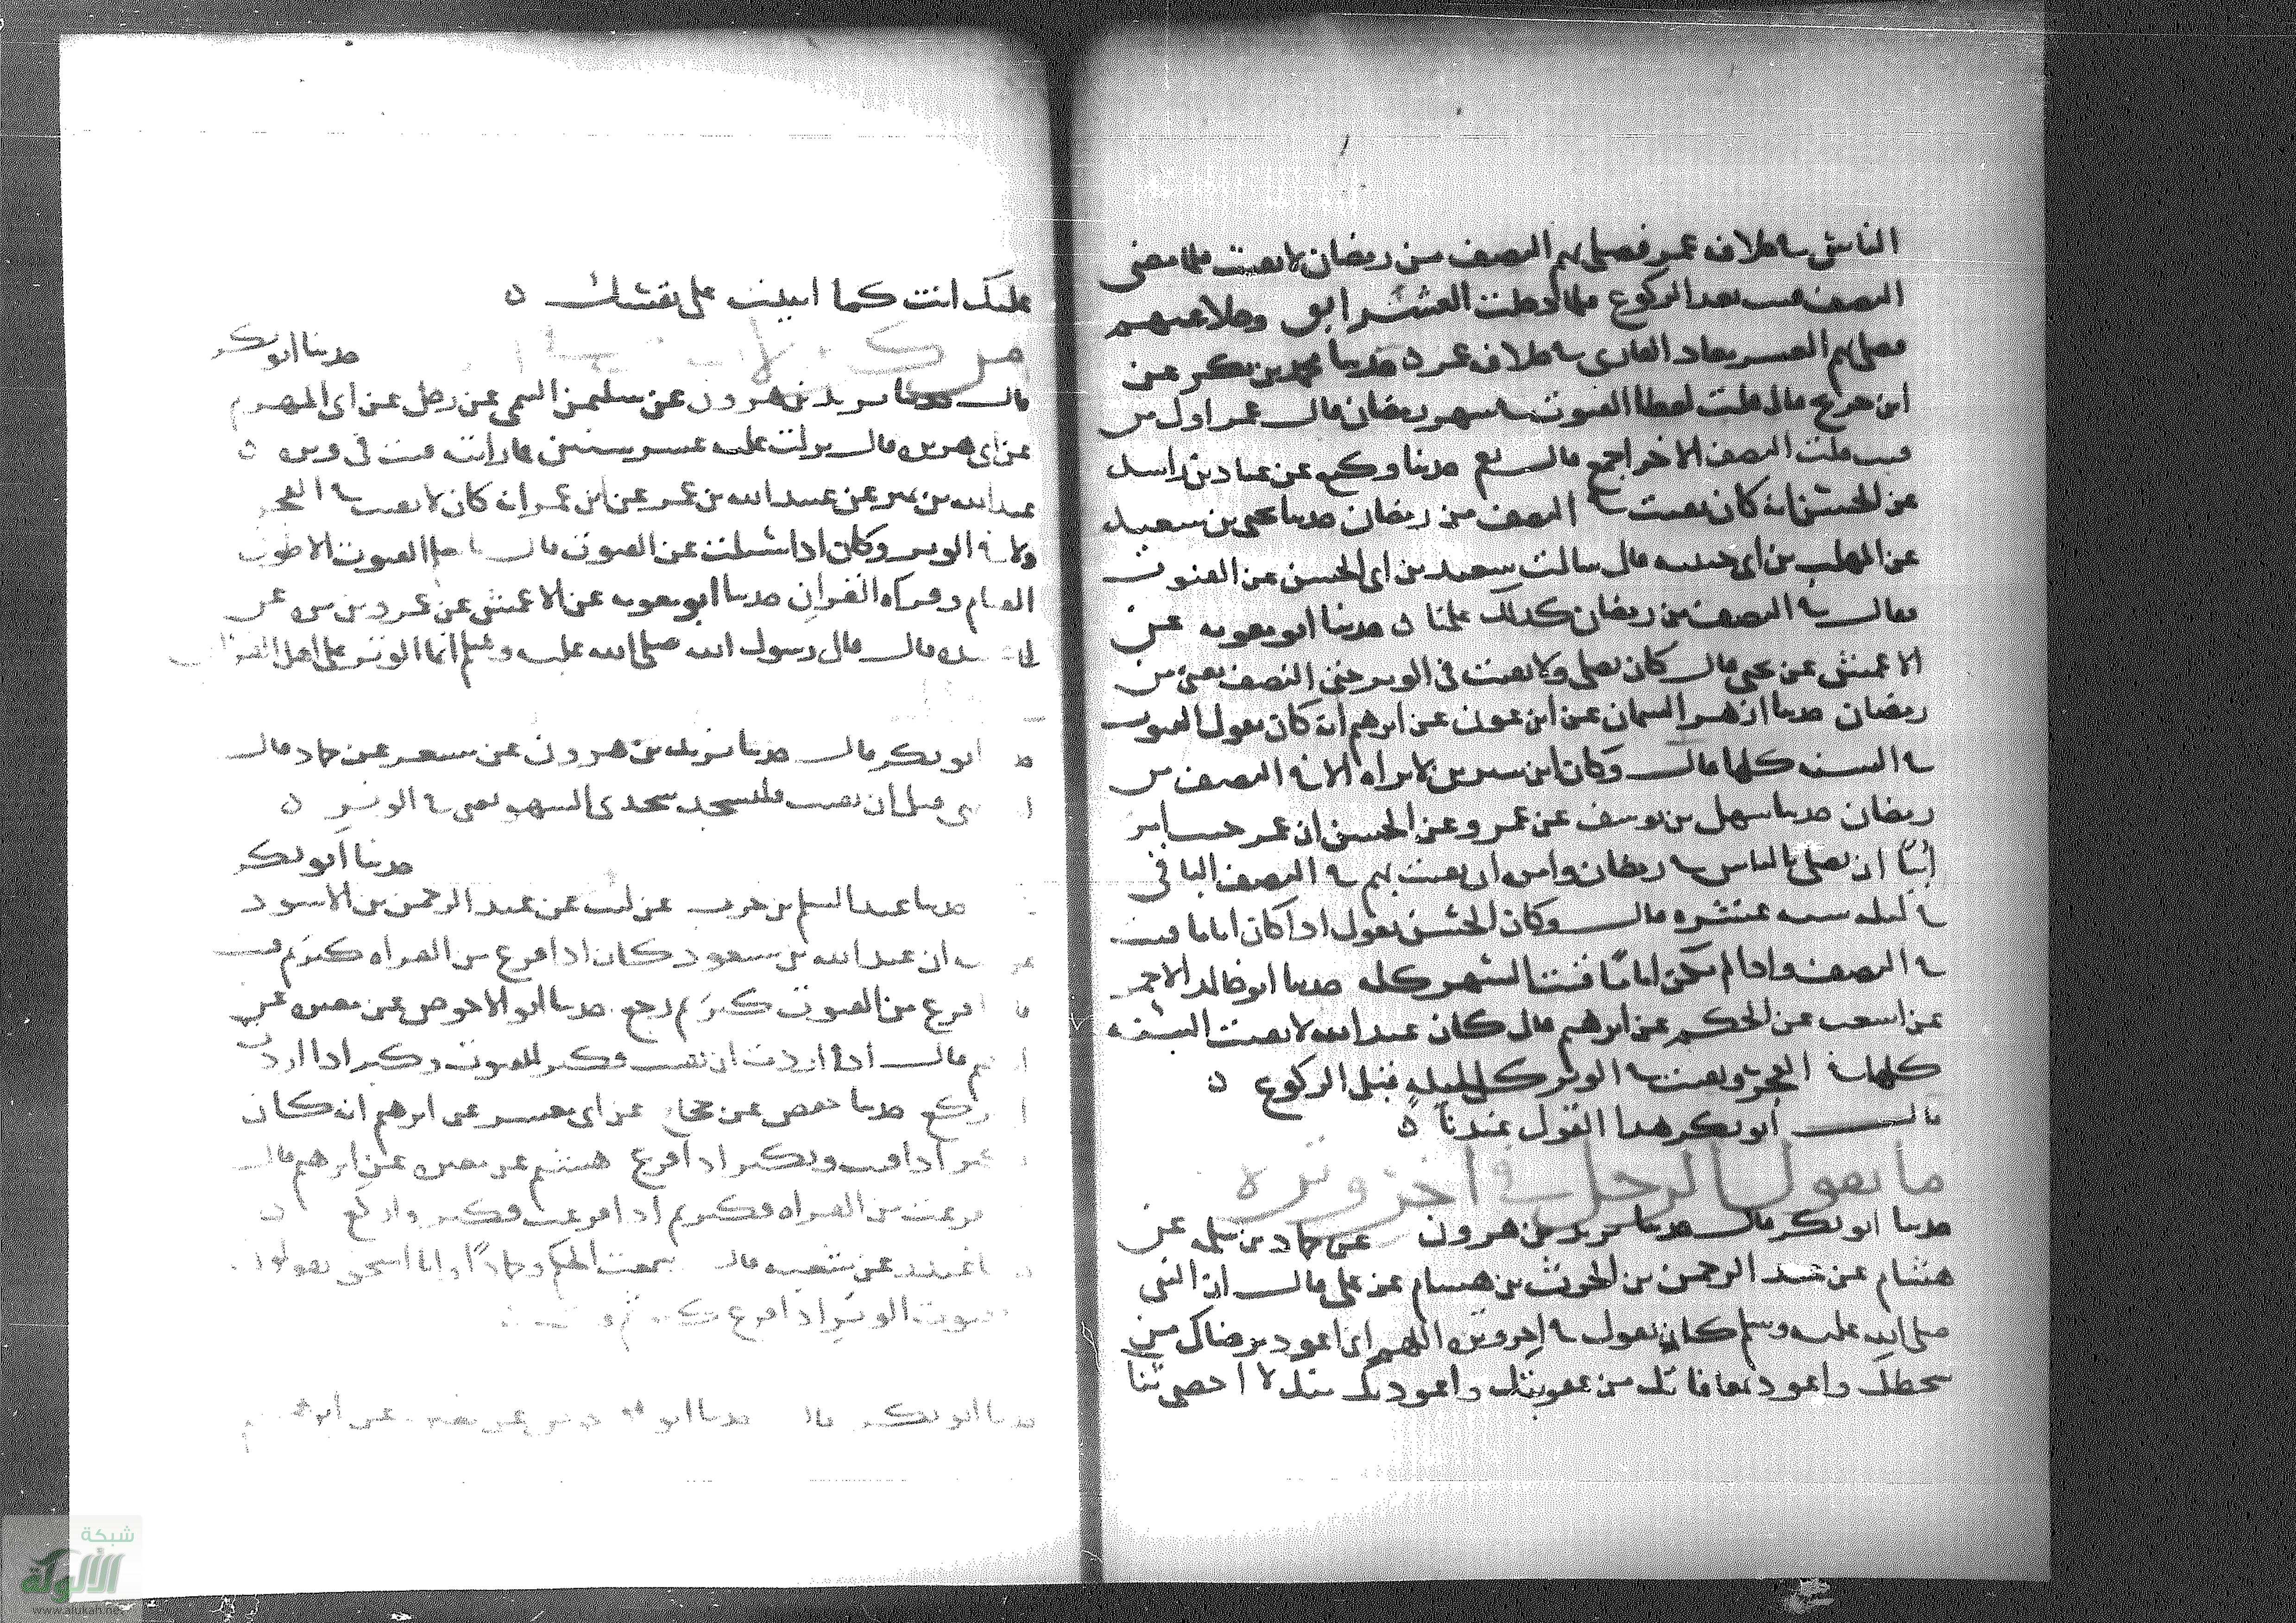 الناس في خلافة عمر فصلى بهم النصف من رمضان لا يقنت فلما مضى
النصف قنت بعد الركوع فلما دخلت العشر ابق وخلا عنهم
فصلى بهم العشر معاذ القارى في خلافة عمر ه حدثنا محمد بن بكر عن
ابن جريج قال قلت لعطا القنوت في شهر رمضان قال عمر اول من
قنت قلت النصف الاخر اجمع قال نعم حدثنا وكيع عن عباد بن راشد
عن الحسن انه كان يقنت في النصف من رمضان حدثنا يحيى بن سعيد
عن المهلب بن ابى حبيبه قال سالت سعيد بن ابى الحسن عن القنوت
فقال في النصف من رمضان كذلك علمنا ه حدثنا ابو معويه عن
الاعمش عن يحيى قال كان يصلى ولا يقنت في الوتر حتى النصف يعنى من
رمضان حدثنا ازهر السمان عن ابن عون عن ابرهيم انه كان يقول القنوت
في السنه كلها قال وكان ابن سيرين لا يراه الا في النصف من
رمضان حدثنا سهل بن يوسف عن عمرو عن الحسن ان عمر حيث امر
ابيا ان يصلى بالناس في رمضان وامره ان يقنت بهم في النصف الباقى
في ليله ست عشره قال وكان الحسن يقول اذا كان اماما قنت
في النصف واذا لم يكن اماما قنت الشهر كله حدثنا ابو خالد الاحمر
عن اشعث عن الحكم عن ابرهيم قال كان عبد الله لا يقنت السنه
كلها في الفجر ويقنت في الوتر كل ليله قبل الركوع ه
قال ابو بكر هذا القول عندنا ه
ما يقول الرجل في اخر وتره
حدثنا ابو بكر قال حدثنا يزيد بن هرون عن حماد بن سلمه عن
هشام عن عبد الرحمن بن الحرث بن هشام عن على قال ان النبى
صلى الله عليه وسلم كان يقول في اخر وتره اللهم انى اعوذ برضاك من
سخطك واعوذ بمعافاتك من عقوبتك واعوذ بك منك لا احصى ثنا
عليك انت كما اثنيت على نفسك ه
حدثنا ابو بكر
قال حدثنا يزيد بن هرون عن سليمن التيمى عن رجل عن ابى المهزم
عن ابى هريره قال نزلت عليه عشر سنين فما رايته قنت في وتره ه
عبد الله بن نمير عن عبيد الله بن عمر عن ابن عمر انه كان لا يقنت في الفجر
ولا في الوتر وكان اذا سئل عن القنوت قال ما نعلم القنوت الا طول
القيام وقراه القران حدثنا ابو معويه عن الاعمش عن عمرو بن مره عن
قال قال رسول الله صلى الله عليه وسلم انما الوتر على اهل القران
ابو بكر قال حدثنا يزيد بن هرون عن مسعر عن حماد قال
نسى قبل ان يقنت فليسجد سجدتى السهو يعنى في الوتر ه
حدثنا ابو بكر
حدثنا عبد السلم بن حرب عن ليث عن عبد الرحمن بن الاسود
ان عبد الله بن مسعود كان اذا فرغ من القراه كبر ثم قنت
فرغ من القنوت كبر ثم ركع حدثنا ابو الاحوص عن مغيره عن
قال اذا اردت ان تقنت فكبر للقنوت وكبر اذا اردت
تركع حدثنا حفص عن حجاج عن ابى معشر عن ابرهيم انه كان
اذا قنت ويكبر اذا فرغ هشيم عن مغيره عن ابرهيم قال
فرغت من القراه فكبر ثم اذا فرغت فكبر واركع ه
غندر عن شعبه قال سمعت الحكم وحمادا وابا اسحق يقولون
قنوت الوتر اذا فرغ
حدثنا ابو بكر قال حدثنا ابو